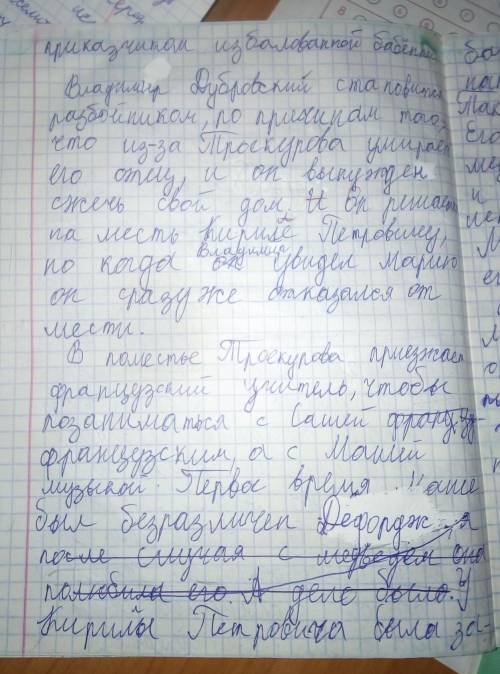 приказчитом избалованной бабёнки
Владимир Дубровский становится
разбойником, по причинам того,
что из-за Троекурова умирает
его отец, и он вынужден
сжечь свой дом. И он решает
на месть Кириле Петровичу,
но когда Владимир увидел Марию
он сразу же отказался от
мести.
В поместье Троекурова приезжает
французский учитель, чтобы
позаниматься с Сашей францу
французским, а с Машей
музыкой. Первое время Маше
был безразличен Дефордж, а
после случая с медведем она
полюбила его. А дело было. У
Кирилы Петровича была за-